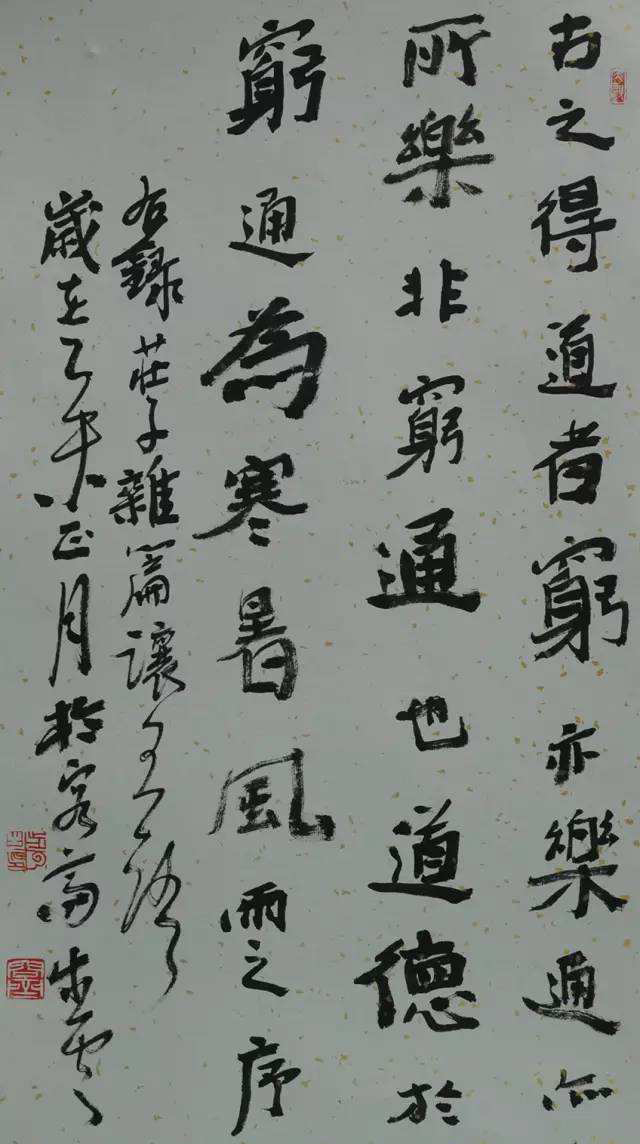 古之得道者窮亦樂通亦
所樂非窮通也道德於
窮通為寒暑風雨之序
右錄莊子雜篇讓王
歲在乙未正月於